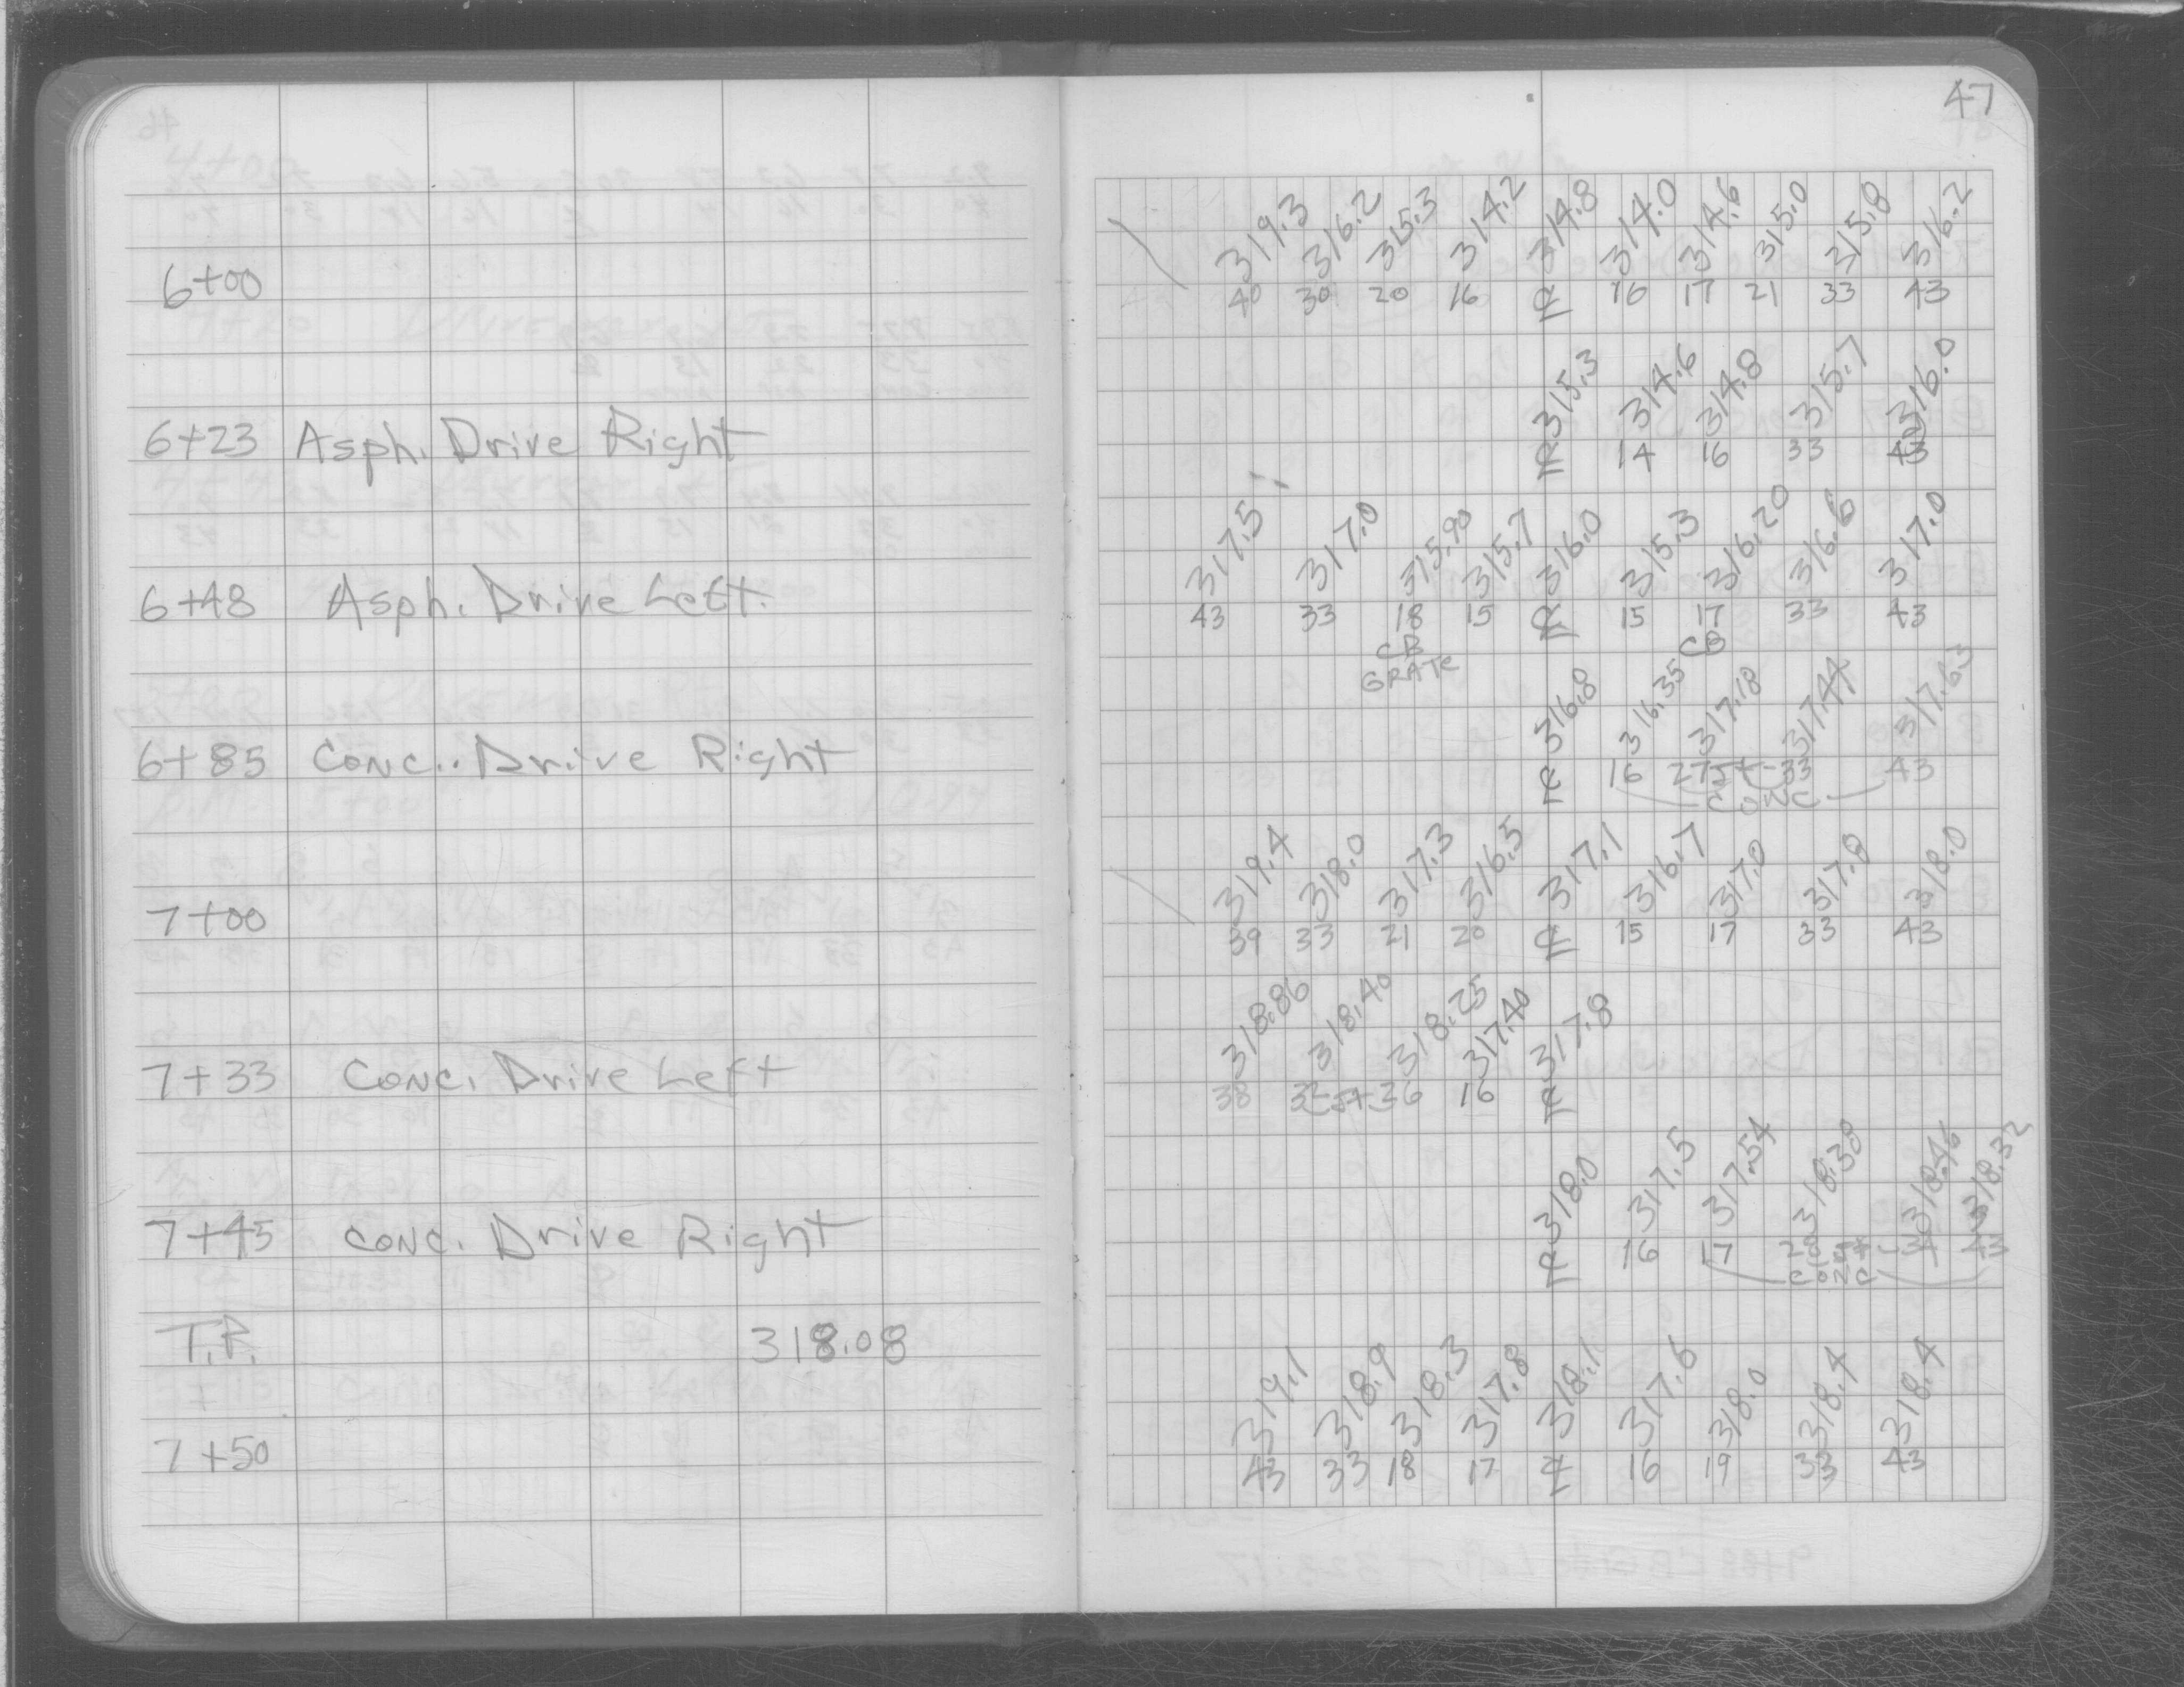 47
319.3 316.2 315.3 314.2 314.8 314.0 314.6 315.0 315.8 316.2
6+00 40 30 20 16 ℄ 16 17 21 33 43
315.3 314.6 314.8 315.7 316.0
6+23 Asph. Drive Right ℄ 14 16 33 43
317.5 317.0 315.90 315.7 316.0 315.3 316.20 316.6 317.0
6+48 Asph. Drive Left. 43 33 18 15 ℄ 15 17 33 43
CB CB
GRATE
316.8 316.35 317.18 317.44
6+85 Conc.. Drive Right ℄ 16 27 33 43
CONC
319.4 318.0 317.3 316.5 317.1 316.7 317.0 317.8 318.0
7+00 39 33 21 20 ℄ 15 17 33 43
318.86 318.40 318.25 317.40 317.8
7+33 Conc. Drive Left 38 16 ℄
318.0 317.5 317.54 318.38 318.46 318.32
7+45 conc. Drive Right ℄ 16 17 43
conc
T.P. 318.08
319.1 318.9 318.3 317.8 318.1 317.6 318.0 318.4 318.4
7+50 43 33 18 17 ℄ 16 19 33 43